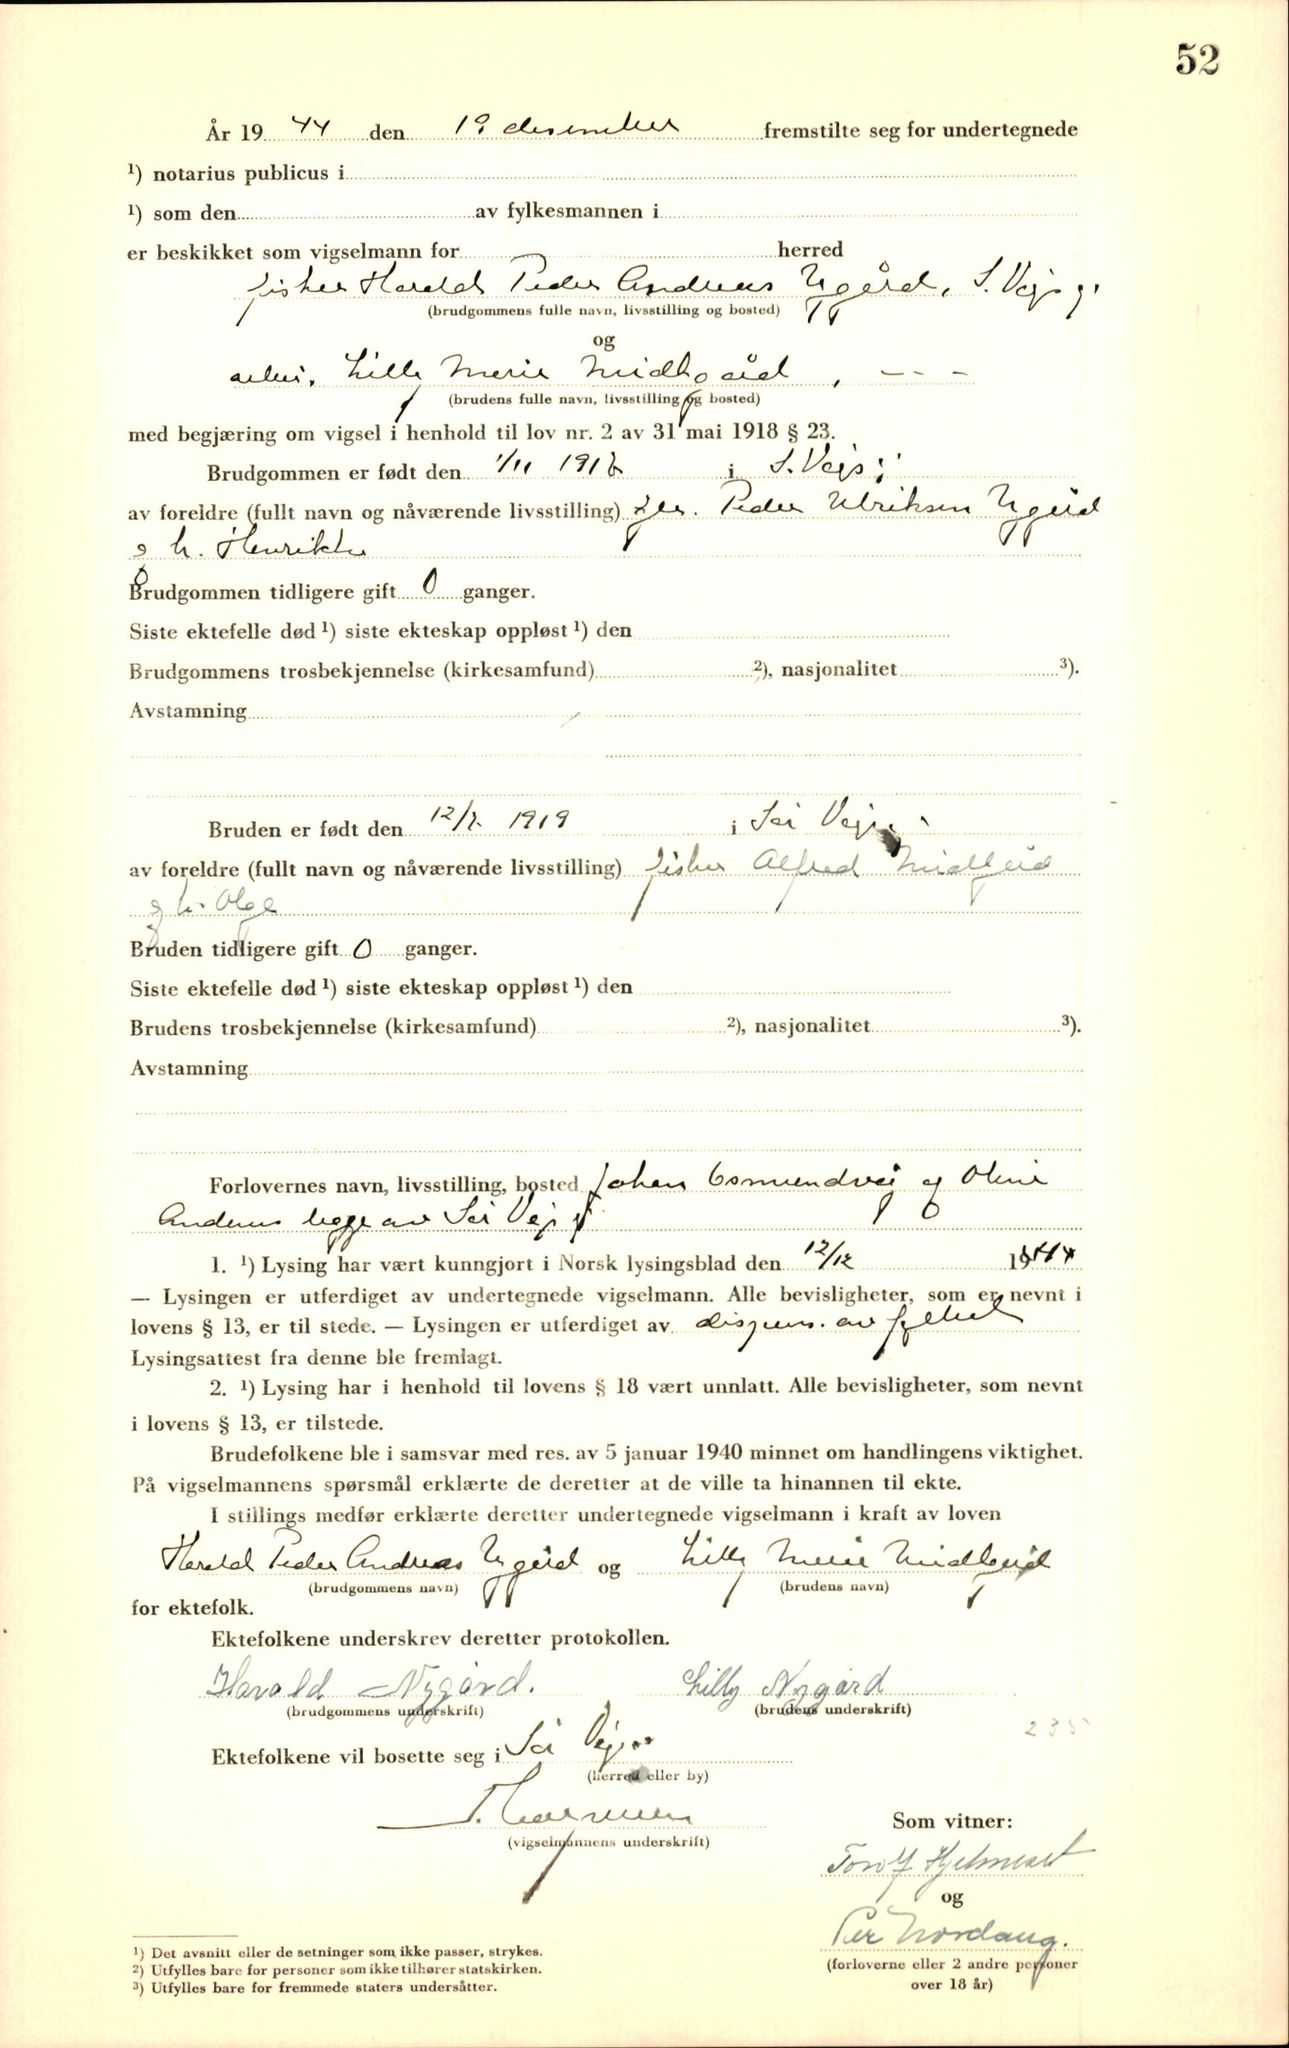 52
År 19 44 den 19 desember fremstilte seg for undertegnede
¹) notarius publicus i
¹) som den av fylkesmannen i
er beskikket som vigselmann for herred
fisker Harald Peder Andreas Nygård, S. Vågsøy
(brudgommens fulle navn, livsstilling og bosted)
og
Lilly Merie Midtgård, – – –
(brudens fulle navn, livsstilling og bosted)
med begjæring om vigsel i henhold til lov nr. 2 av 31 mai 1918 § 23.
Brudgommen er født den 1/11 i S. Vågsøy
av foreldre (fullt navn og nåværende livsstilling) Peder Ulriksen Nygård
og h. Henrikke
Brudgommen tidligere gift 0 ganger.
Siste ektefelle død ¹) siste ekteskap oppløst ¹) den
Brudgommens trosbekjennelse (kirkesamfund) ²), nasjonalitet ³).
Avstamning
Bruden er født den 12/7. 1919 i Sør Vågsøy
av foreldre (fullt navn og nåværende livsstilling) fisker Alfred Midtgård
og h. Olga
Bruden tidligere gift 0 ganger.
Siste ektefelle død ¹) siste ekteskap oppløst ¹) den
Brudens trosbekjennelse (kirkesamfund) ²), nasjonalitet ³).
Avstamning
Forlovernes navn, livsstilling, bosted Johan Osmundvåg og Oline
begge av Sør Vågsøy
1. ¹) Lysing har vært kunngjort i Norsk lysingsblad den 12/12 1944
— Lysingen er utferdiget av undertegnede vigselmann. Alle bevisligheter, som er nevnt i
lovens § 13, er til stede. — Lysingen er utferdiget av dispens. av fylket
Lysingsattest fra denne ble fremlagt.
2. ¹) Lysing har i henhold til lovens § 18 vært unnlatt. Alle bevisligheter, som nevnt
i lovens § 13, er tilstede.
Brudefolkene ble i samsvar med res. av 5 januar 1940 minnet om handlingens viktighet.
På vigselmannens spørsmål erklærte de deretter at de ville ta hinannen til ekte.
I stillings medfør erklærte deretter undertegnede vigselmann i kraft av loven
Harald Peder Andreas Nygård og Lilly Merie Midtgård
(brudgommens navn) (brudens navn)
for ektefolk.
Ektefolkene underskrev deretter protokollen.
Harald Nygård. Lilly Nygård
(brudgommens underskrift) (brudens underskrift)
235
Ektefolkene vil bosette seg i Sør Vågsøy
(herred eller by)
(vigselmannens underskrift)
Som vitner:
Torolf Hjelmeset
og
Per Nordang.
(forloverne eller 2 andre personer
over 18 år)
¹) Det avsnitt eller de setninger som ikke passer, strykes.
²) Utfylles bare for personer som ikke tilhører statskirken.
³) Utfylles bare for fremmede staters undersåtter.